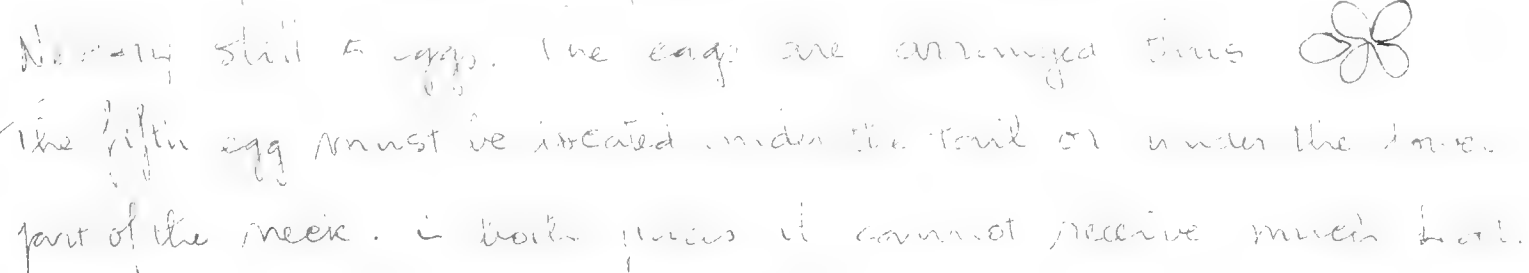 still 5 eggs. The eggs are arranged thus
The fifth egg must be located under the tail or under the lower
part of the neck. in both places it cannot receive much heat.